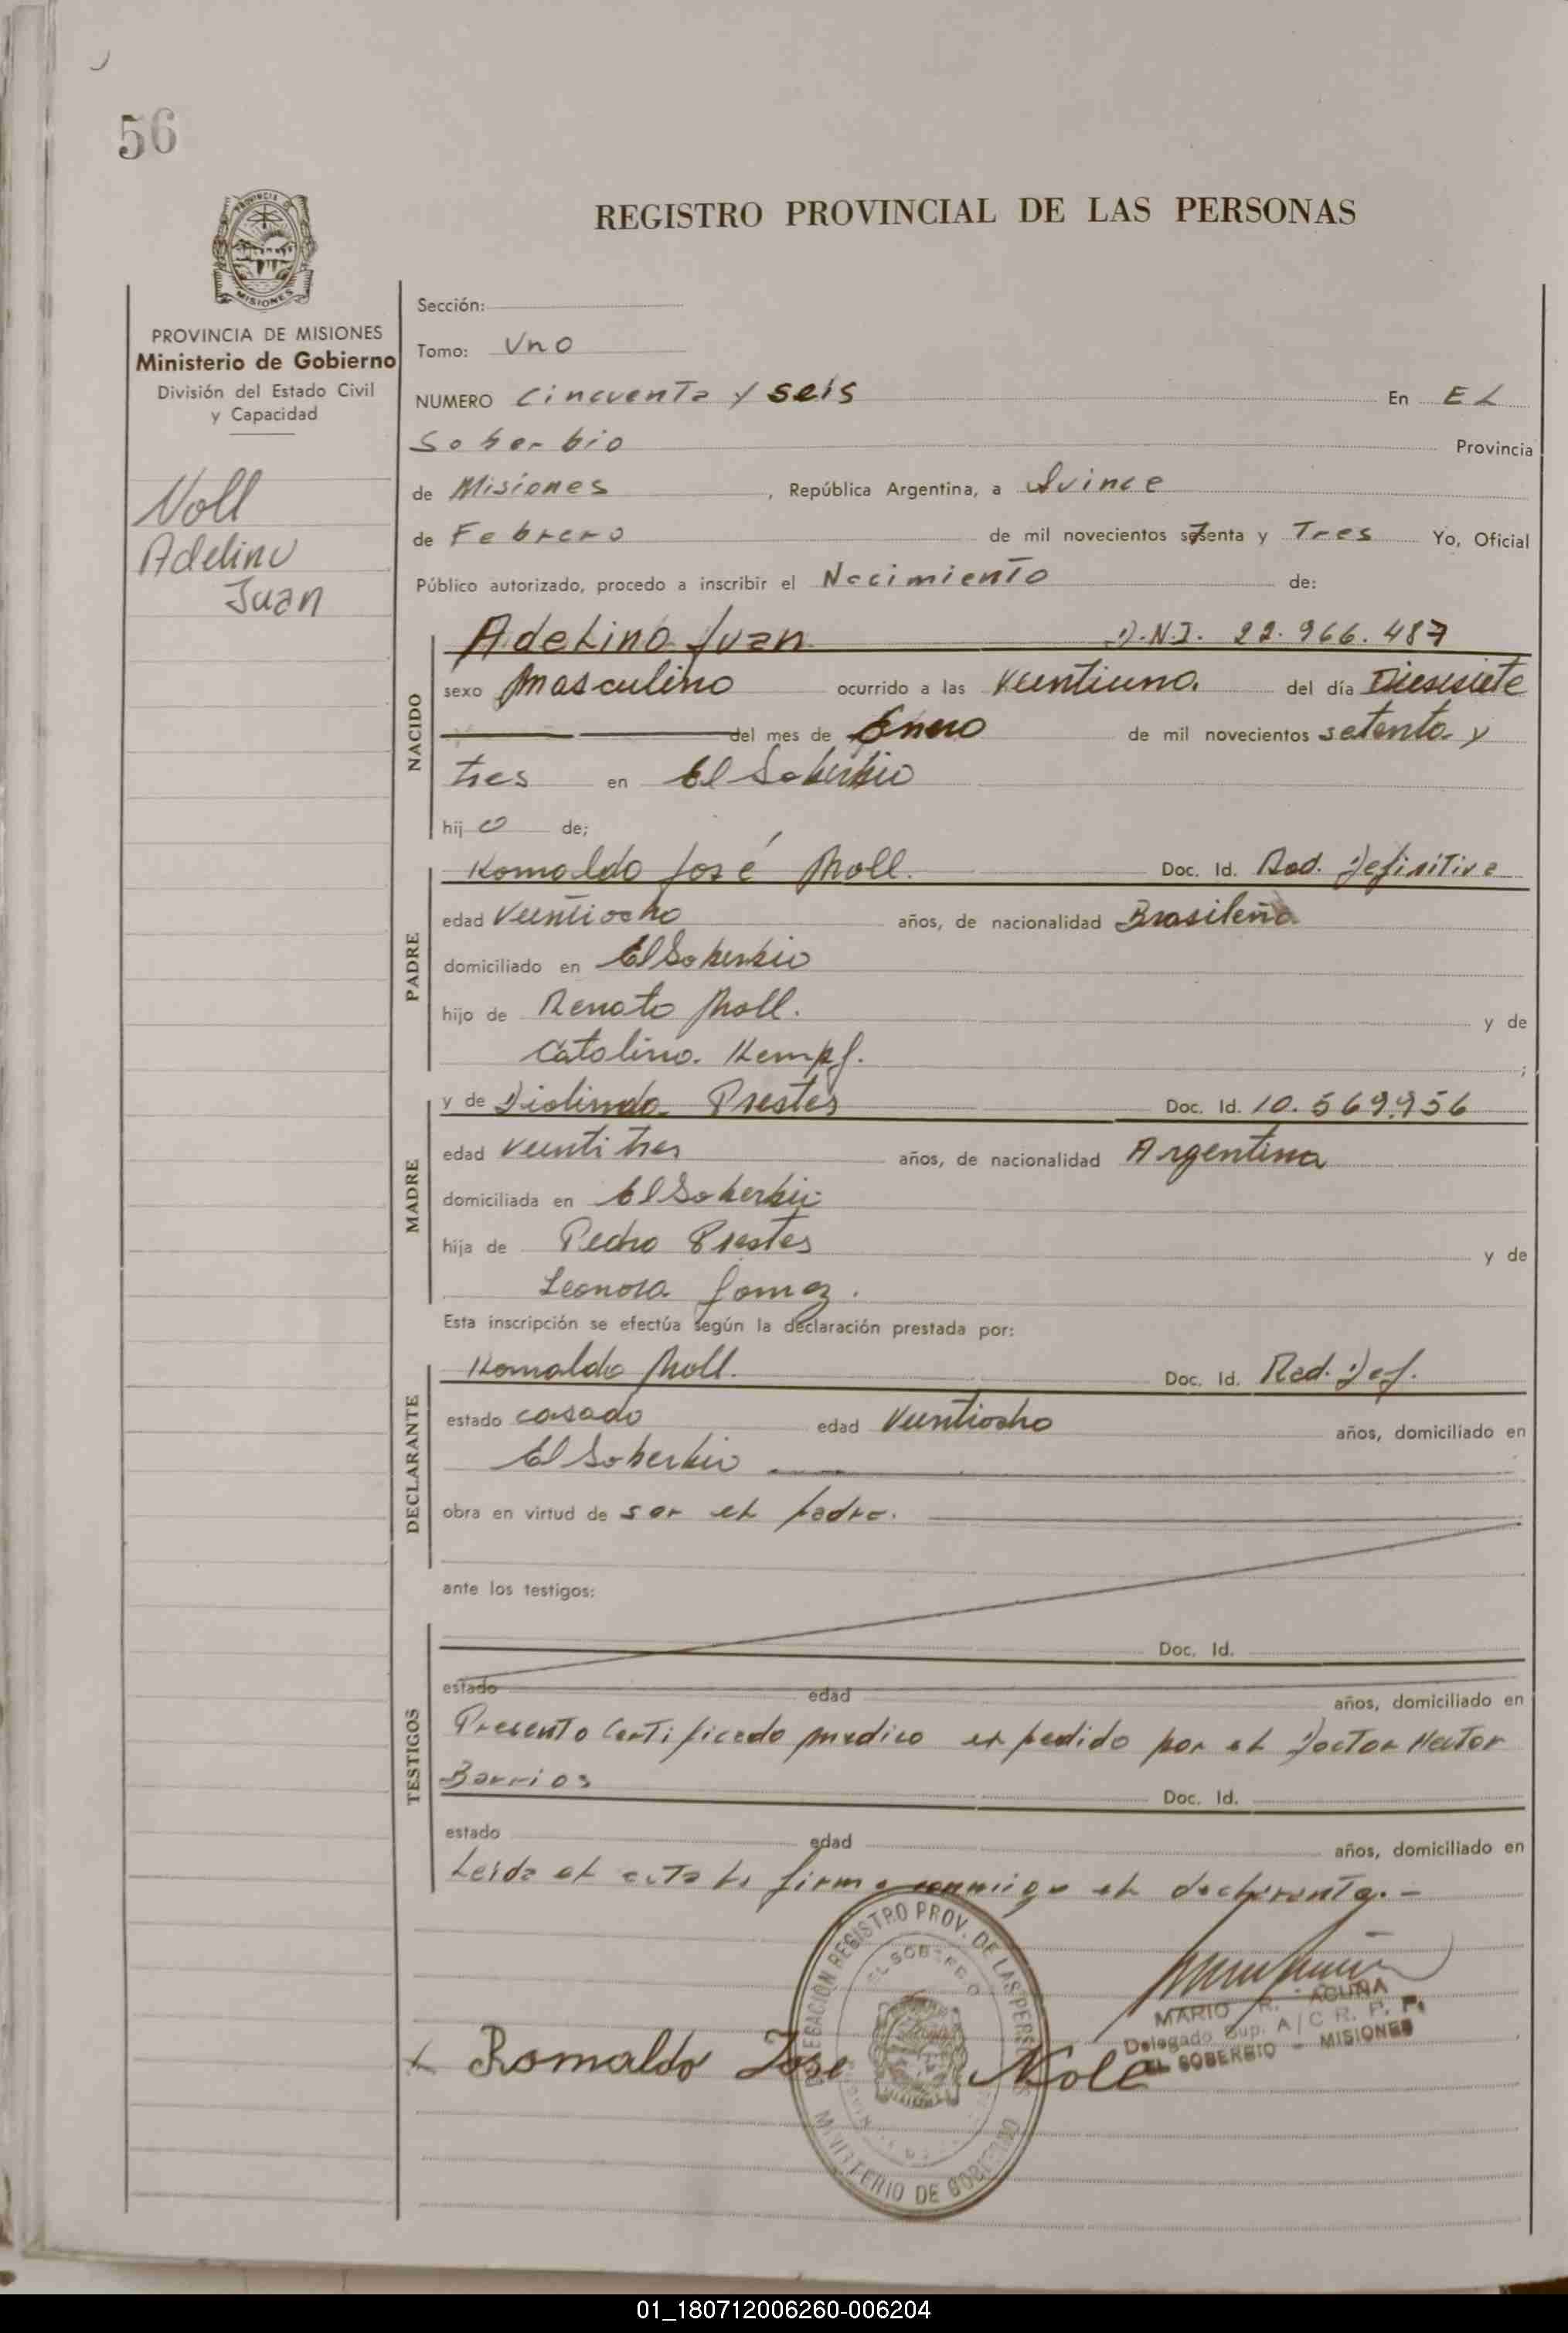 56
REGISTRO PROVINCIAL DE LAS PERSONAS
PROVINCIA DE MISIONES
Ministerio de Gobierno
División del Estado Civil
y Capacidad
Noll
Adelino
Juan
Sección:
Tomo: Uno
NUMERO Cincuenta y seis En EL
Soberbio Provincia
de Misiones, República Argentina, a Quince
de Febrero de mil novecientos setenta y Tres Yo, Oficial
Público autorizado, procedo a inscribir el Nacimiento de:
NACIDO
Adelino Juan D.N.I. 22.966.487
sexo masculino ocurrido a las veintiuna. del día Diesisiete
del mes de Enero de mil novecientos setenta y
tres en El Soberbio
hijo de;
PADRE
Romaldo José Noll. Doc. Id. Rad. Definitiva
edad veintiocho años, de nacionalidad Brasileña
domiciliado en El Soberbio
hijo de Renato Noll. y de
Catalina Kempf. ;
MADRE
y de Diolinda Prestes Doc. Id. 10.569.956
edad veintitres años, de nacionalidad Argentina
domiciliada en El Soberbio
hija de Pedro Prestes y de
Leonora Gomez.
Esta inscripción se efectúa según la declaración prestada por:
DECLARANTE
Romaldo Noll. Doc. Id. Rad. Def.
estado casado edad veintiocho años, domiciliado en
El Soberbio
obra en virtud de ser el padre.
ante los testigos:
TESTIGOS
Doc. Id.
estado edad años, domiciliado en
Presento Certificado medico expedido por el Doctor Hector
Barrios Doc. Id.
estado edad años, domiciliado en
Leida el acta la firma conmigo el declarante.-
DELEGACION REGISTRO PROV. DE LAS PERSONAS
EL SOBERBIO
MINISTERIO DE GOBIERNO
MARIO R. ACUÑA
Delegado Sup. A/C R. P. P.
EL SOBERBIO - MISIONES
x Romaldo Jose Noll
01_180712006260-006204